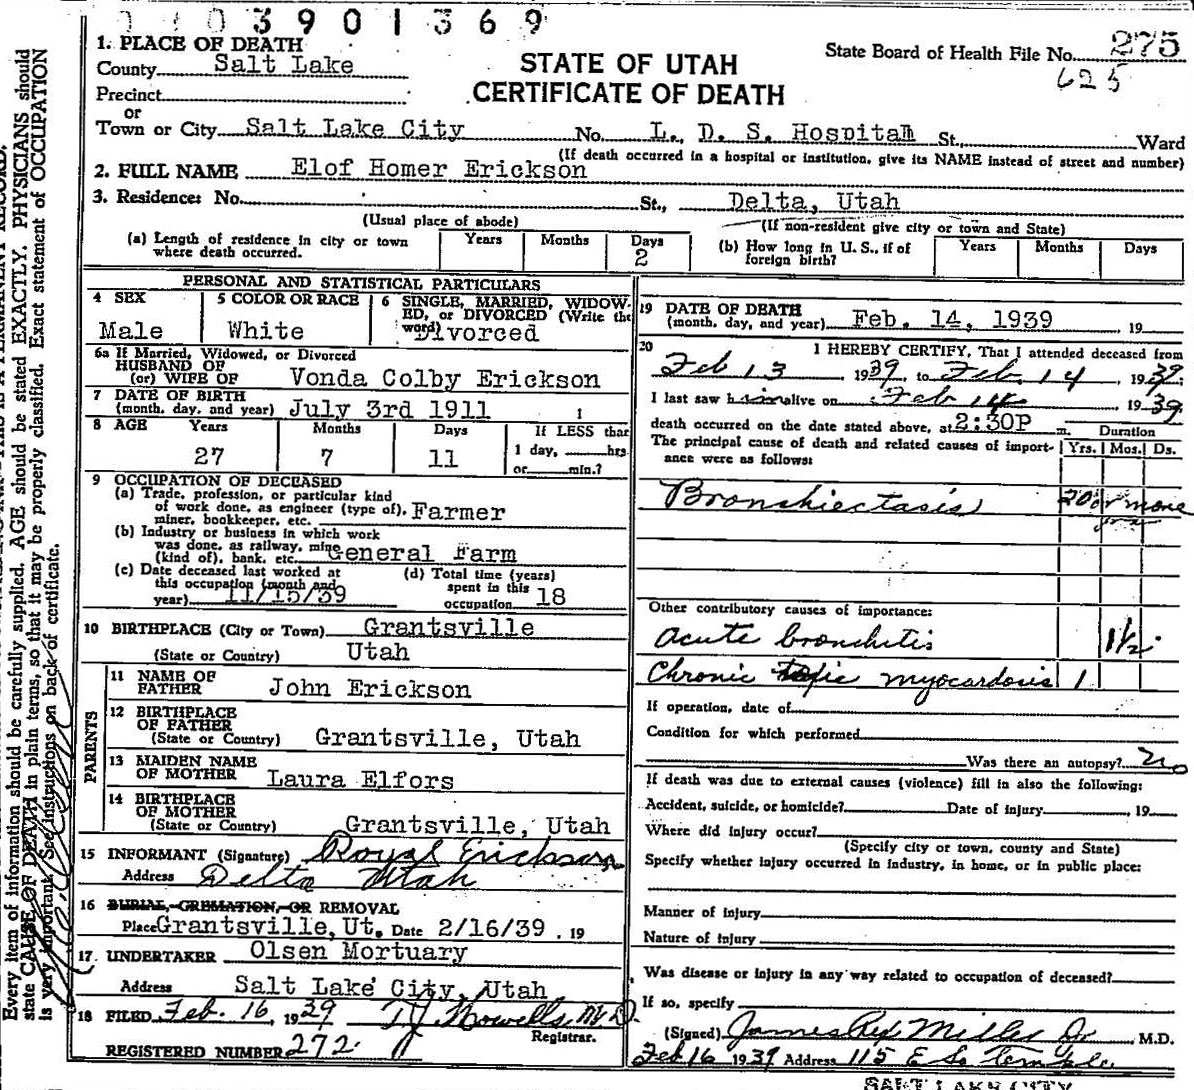 3901369
1. PLACE OF DEATH
County Salt Lake
Precinct
or
Town or City Salt Lake City No. L. D. S. Hospitam St., Ward
STATE OF UTAH
CERTIFICATE OF DEATH
State Board of Health File No. 275
625
(If death occurred in a hospital or institution, give its NAME instead of street and number)
2. FULL NAME Elof Homer Erickson
3. Residence: No. St., Delta, Utah
(Usual place of abode) (If non-resident give city or town and State)
(a) Length of residence in city or town where death occurred. Years Months Days 2
(b) How long in U. S., if of foreign birth? Years Months Days
PERSONAL AND STATISTICAL PARTICULARS
4 SEX Male
5 COLOR OR RACE White
6 SINGLE, MARRIED, WIDOWED, or DIVORCED (Write the word) Divorced
6a If Married, Widowed, or Divorced
HUSBAND OF
(or) WIFE OF Vonda Colby Erickson
7 DATE OF BIRTH
(month, day, and year) July 3rd 1911
8 AGE Years Months Days If LESS than
27 7 11 1 day, hrs.
or min.?
9 OCCUPATION OF DECEASED
(a) Trade, profession, or particular kind
of work done, as engineer (type of),
miner, bookkeeper, etc. Farmer
(b) Industry or business in which work
was done, as railway, mine
(kind of), bank, etc. General Farm
(c) Date deceased last worked at
this occupation (month and
year) 11/15/39
(d) Total time (years)
spent in this
occupation 18
10 BIRTHPLACE (City or Town) Grantsville
(State or Country) Utah
PARENTS
11 NAME OF
FATHER John Erickson
12 BIRTHPLACE
OF FATHER
(State or Country) Grantsville, Utah
13 MAIDEN NAME
OF MOTHER Laura Elfors
14 BIRTHPLACE
OF MOTHER
(State or Country) Grantsville, Utah
15 INFORMANT (Signature) Royal Erickson
Address Delta Utah
16 BURIAL, CREMATION, OR REMOVAL
Place Grantsville, Ut. Date 2/16/39 . 19
17. UNDERTAKER Olsen Mortuary
Address Salt Lake City, Utah
18 FILED Feb. 16, 1939 T J Howells M.D.
Registrar.
REGISTERED NUMBER 272
19 DATE OF DEATH
(month, day, and year) Feb. 14, 1939 19
20 I HEREBY CERTIFY, That I attended deceased from
Feb 13 1939, to Feb. 14, 1939;
I last saw him alive on Feb 14 1939
death occurred on the date stated above, at 2:30P m. Duration
The principal cause of death and related causes of importance were as follows: Yrs. Mos. Ds.
Bronchiectasis 20 or more
yrs
Other contributory causes of importance:
Acute bronchitis 1½
Chronic toxic myocardosis 1
If operation, date of
Condition for which performed
Was there an autopsy? No
If death was due to external causes (violence) fill in also the following:
Accident, suicide, or homicide? Date of injury , 19
Where did injury occur?
(Specify city or town, county and State)
Specify whether injury occurred in industry, in home, or in public place:
Manner of Injury
Nature of Injury
Was disease or injury in any way related to occupation of deceased?
If so, specify
(Signed) James Rex Miller Jr M.D.
Feb 16 1939 Address 115 E So Temple
SALT LAKE CITY
Every item of information should be carefully supplied. AGE should be stated EXACTLY. PHYSICIANS should
state CAUSE OF DEATH in plain terms, so that it may be properly classified. Exact statement of OCCUPATION
is very important. See instructions on back of certificate.